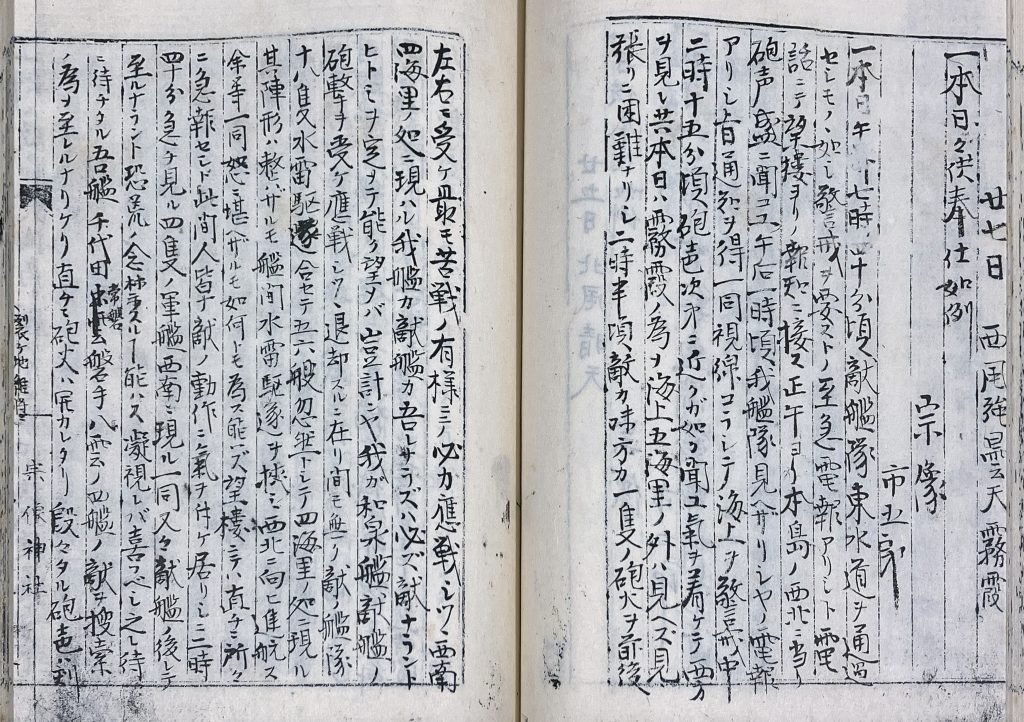 廿七日　西風強曇天霧霞
一本日々供奉仕如例
宗像
市五郎
一本日午前七時四十分頃敵艦隊東水道ヲ通過
セシモノヽ如シ警戒ヲ要ストノ至急電報アリシト電
話ニテ望樓ヨリノ報知ニ接ス正午ヨリ本島ノ西北ニ当リ
砲声盛ニ聞ユ午后一時頃我艦隊見ヘザリシヤノ電報
アリシ旨通知ヲ得一同視線コラシテ海上ヲ警戒中
二時十五分頃砲声次第ニ近クガ如ク聞ユ気ヲ着ケテ西方
ヲ見レ共本日ハ霧霞ノ為メ海上五海里ノ外ハ見ヘズ見
張リ困難ナリシ二時半頃敵カ味方カ一隻ノ砲火ヲ前後
左右ニ受ケ最モ苦戦ノ有様ニテ必力應戦シツヽ西南
四海里ノ処ニ現ハル我艦カ敵艦カ吾レサラズ必ズ敵ナラント
ヒトミヲ定メテ能ク望メバ豈計ンヤ我ガ和泉艦敵艦ノ
砲撃ヲ受ケ應戦シツヽ退却スルニ在リ間モ無ク敵ノ艦隊
十八隻水雷駆逐合セテ五六艘忽然トシテ四海里ノ処ニ現ル
其陣形ハ整ハザルモ艦間水雷駆逐ヲ挟ミ西北ニ向ヒ進航ス
余等一同怒ニ堪ヘザルモ如何トモ為ス能ハズ望樓ニテハ直チニ所々
ニ急報セシト此間人皆ナ敵ノ動作ニ氣ヲ付ケ居リシニ二時
四十分急チ見ル四隻ノ軍艦西南ニ現ル一同又々敵艦ノ後レテ
至ルナラント恐荒ノ念禁スルー能ハス凝視レバ喜フベシ之レ待
ニ待チタル吾艦千代田常磐磐手八雲ノ四艦ノ敵ヲ搜索
ノ為メ至レルナリケリ直チニ砲火ハ開カレタリ殷々タル砲声ハ到
宗像神社